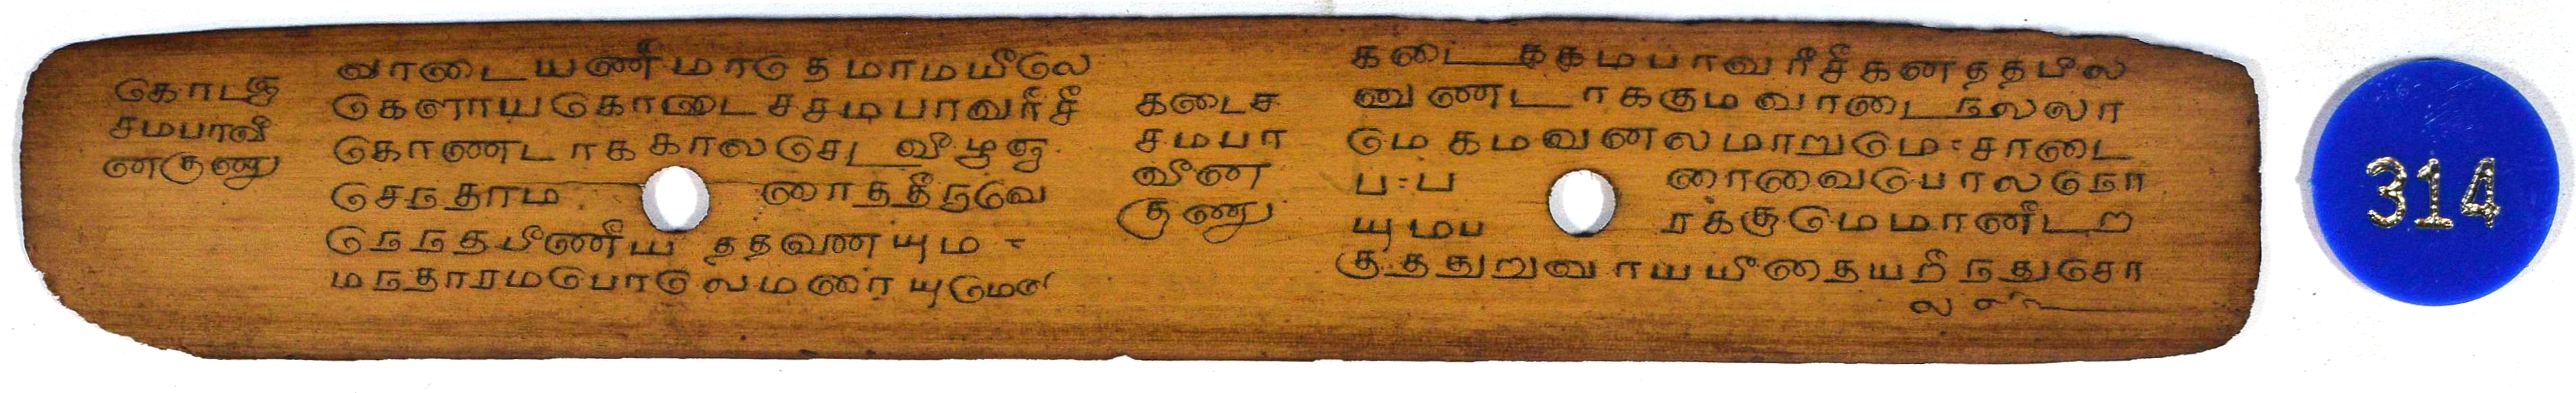 கொடசு
சமபாவீ
னகுணு
வாடையணீமாதெமாமயீலே
கெளாயகொடைசசமபாவரீசீ
கொணடாககாலசெடவீழுஞ
செநதாம னாததீருவே
நெநதமீணீய ததவணயும
மநதாரமபொலெமரையுமெ
கடைச
சமபா
வீண
குணு
கடைசசமபாவரீசீகனததமீல
வுணடாககுமவாடைநலலா
மெகமவனலமாறுமெ சாடை
ப ப ரைவைபொலநொ
யுமப ரககுமெமாணீடற
குததுறுவாயயீதையறீநதுசொ
ல
314